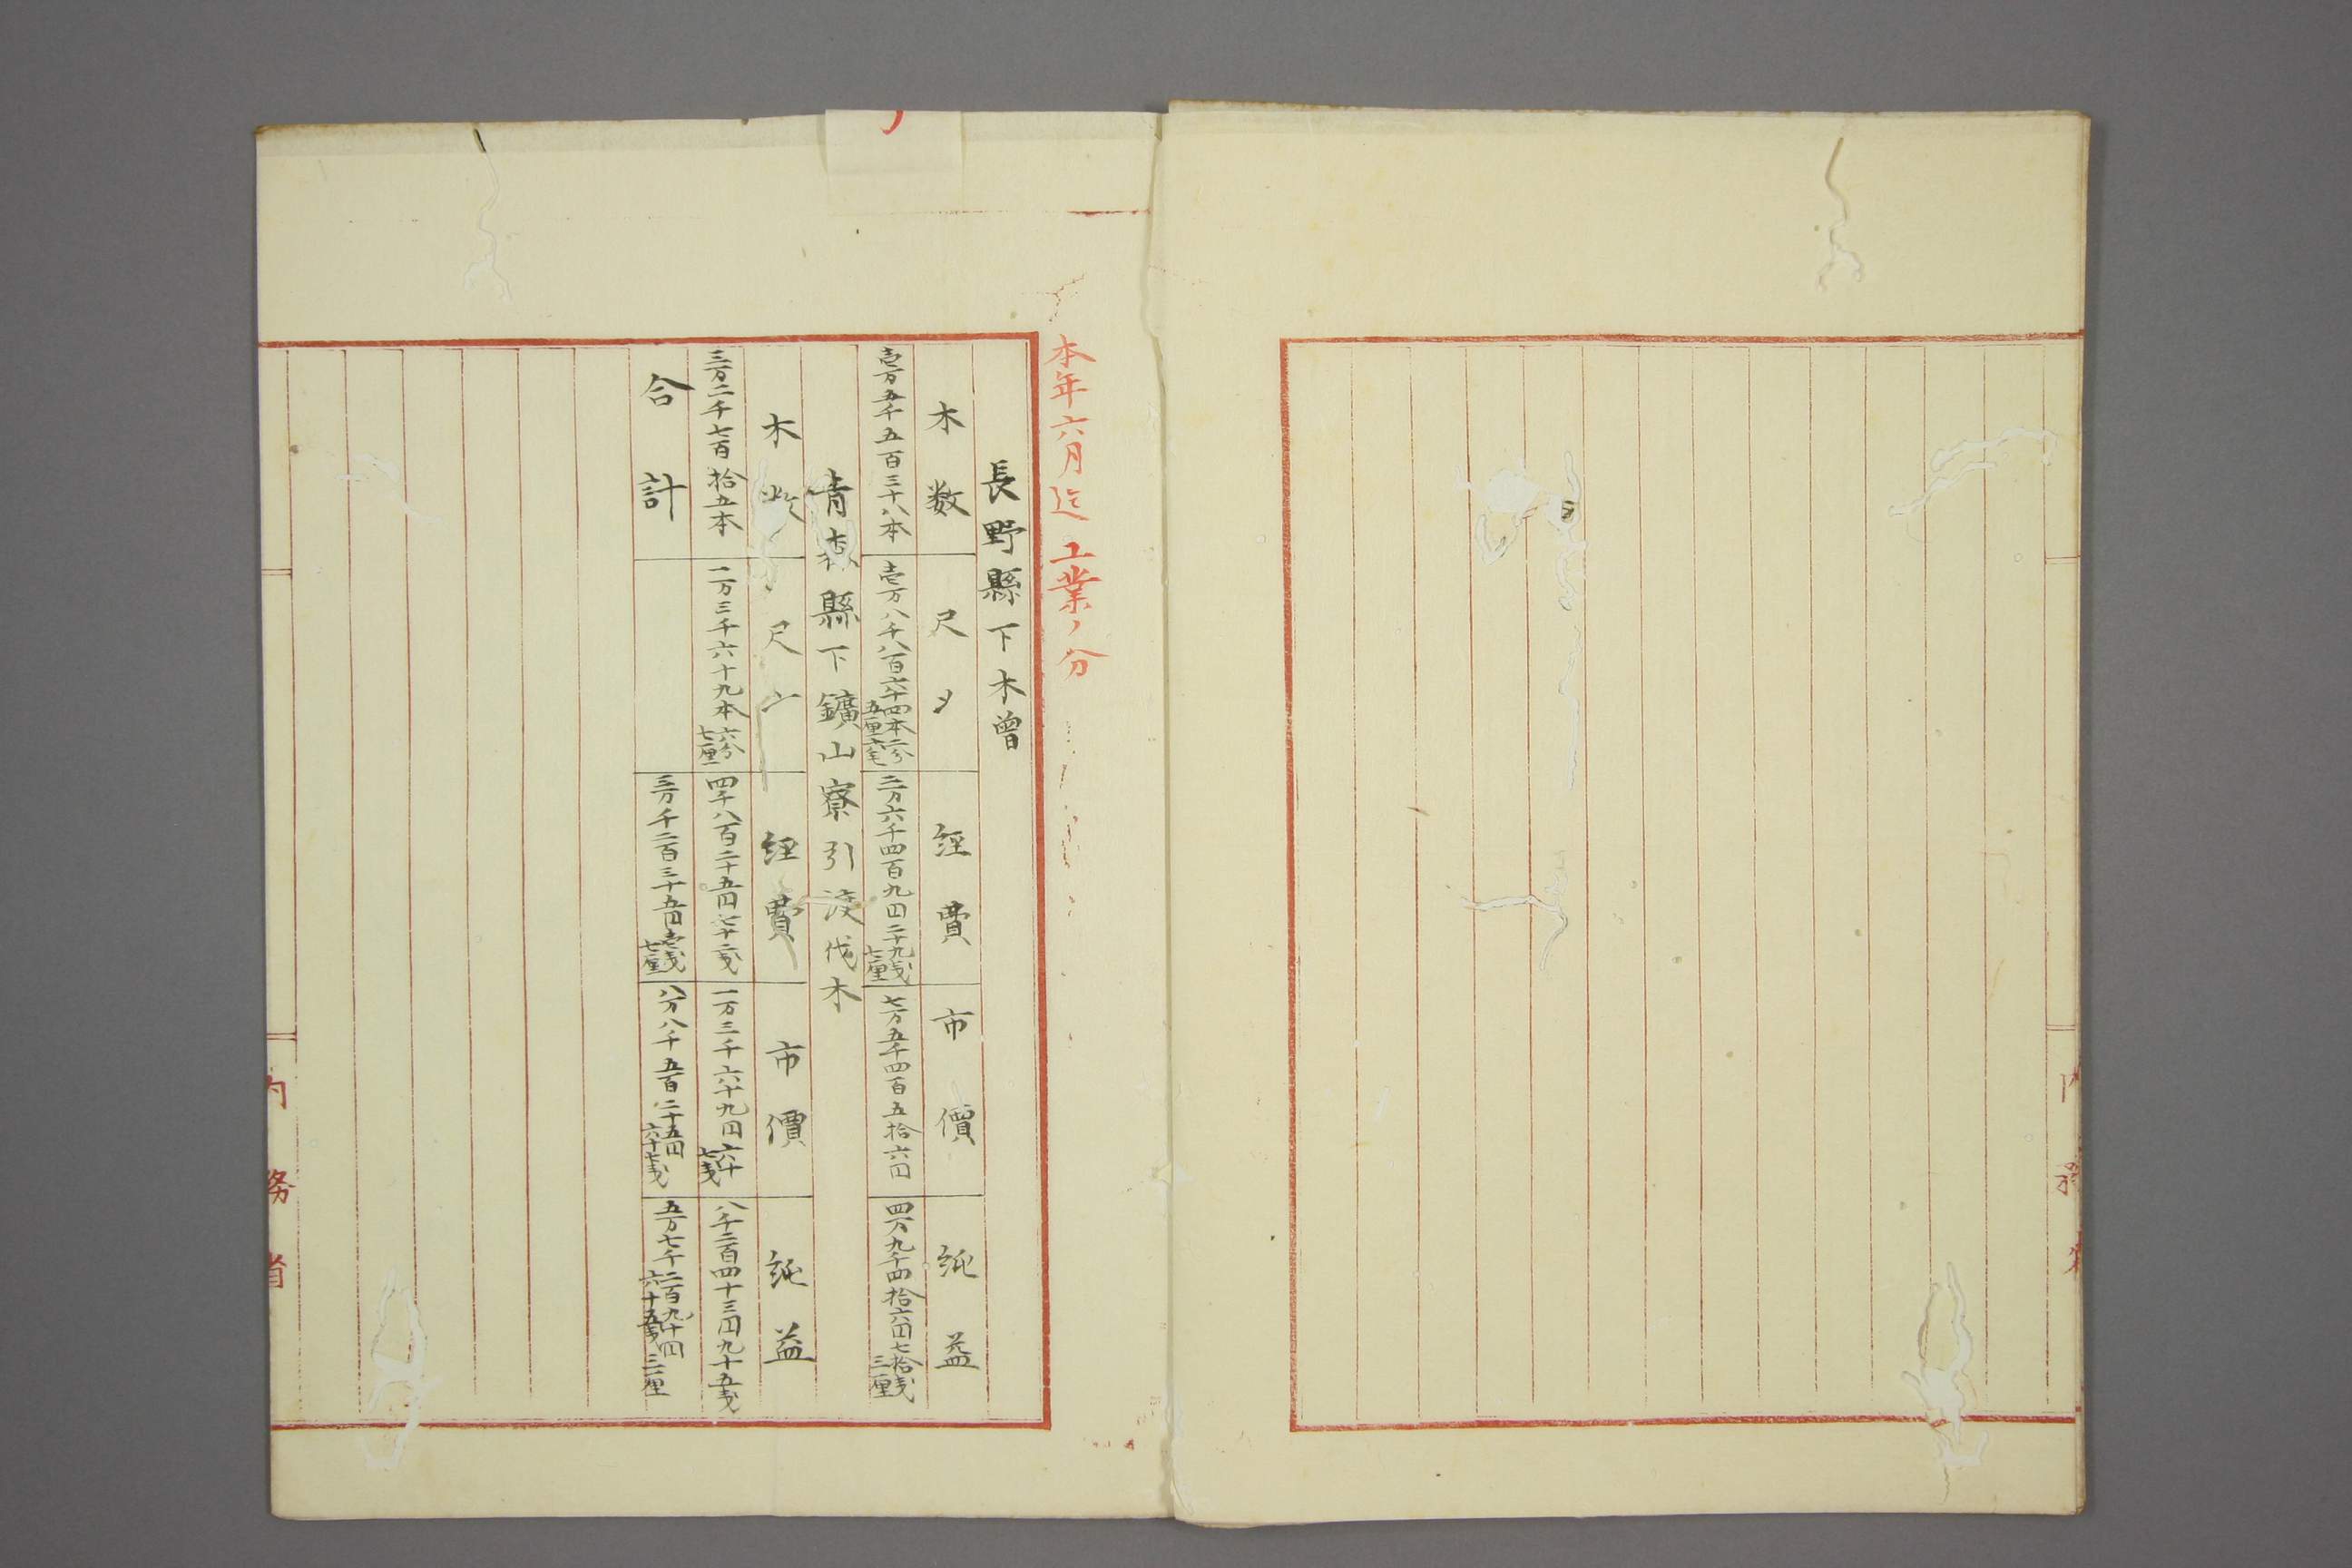 本年六月迄工業ノ分
長野縣下木曽
木数 尺〆 経費 市價 純益
壱万五千五百三十八本 壱万八千八百六十四本二分五厘 二万六千四百九円二十九戔七厘 七万五千四百五拾六円 四万九千四拾六円七拾戔三厘
青森縣下鑛山寮引渡伐木
木数 尺〆 経費 市價 純益
三万二千七百拾五本 一万三千六十九本六分七厘 四千八百二十五円七十二戔 一万三千六十九円六十七戔 八千二百四十三円九十五戔
合計 三万千二百三十五円壱戔七厘 八万八千五百二十五円六十七戔 五万七千二百九十円六十五戔三厘
内務省
内務省